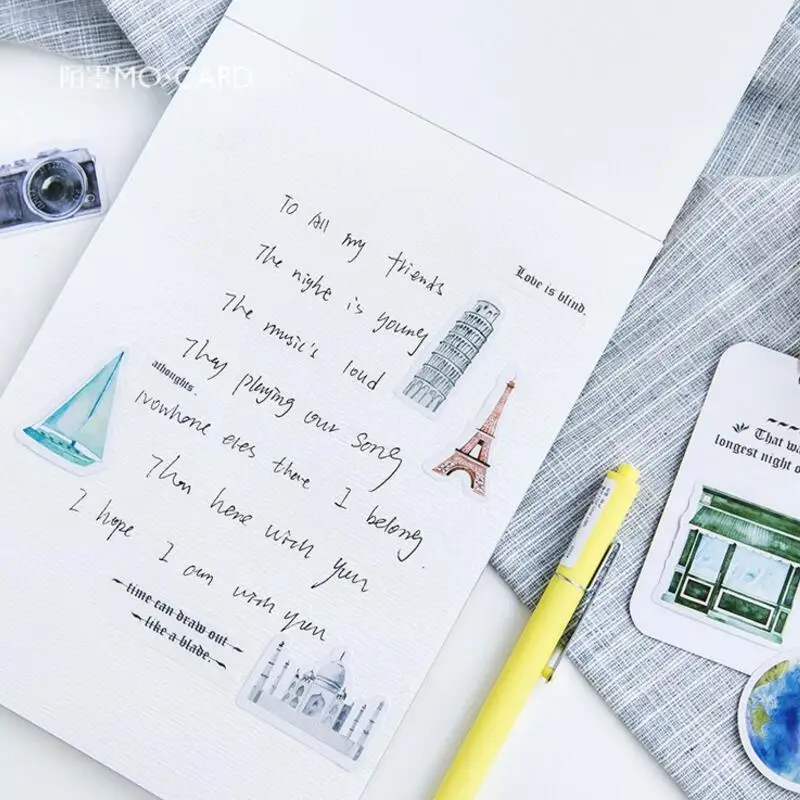 陌墨MO·CARD
To All my friends
The night is young
Love is blind.
The music's loud
They playing our song
athoughts.
Nowhere eles there I belong.
Than here with you
I hope I am with you
time can draw out
like a blade.
That wa
longest night o